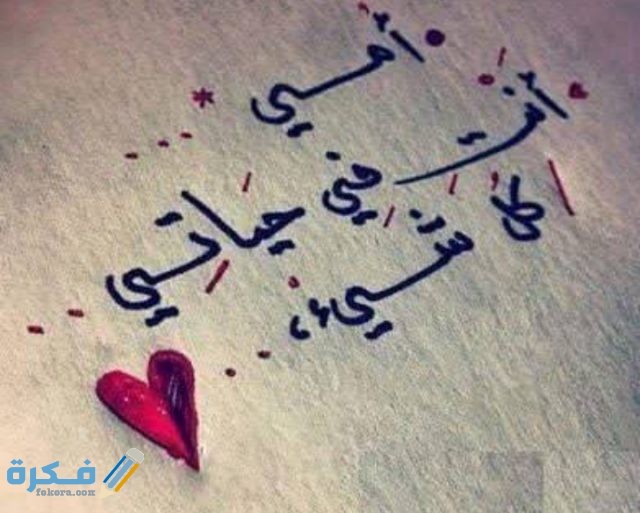 أمي
أنتِ
كل شيء،
في حياتي
فكرة
fekera.com